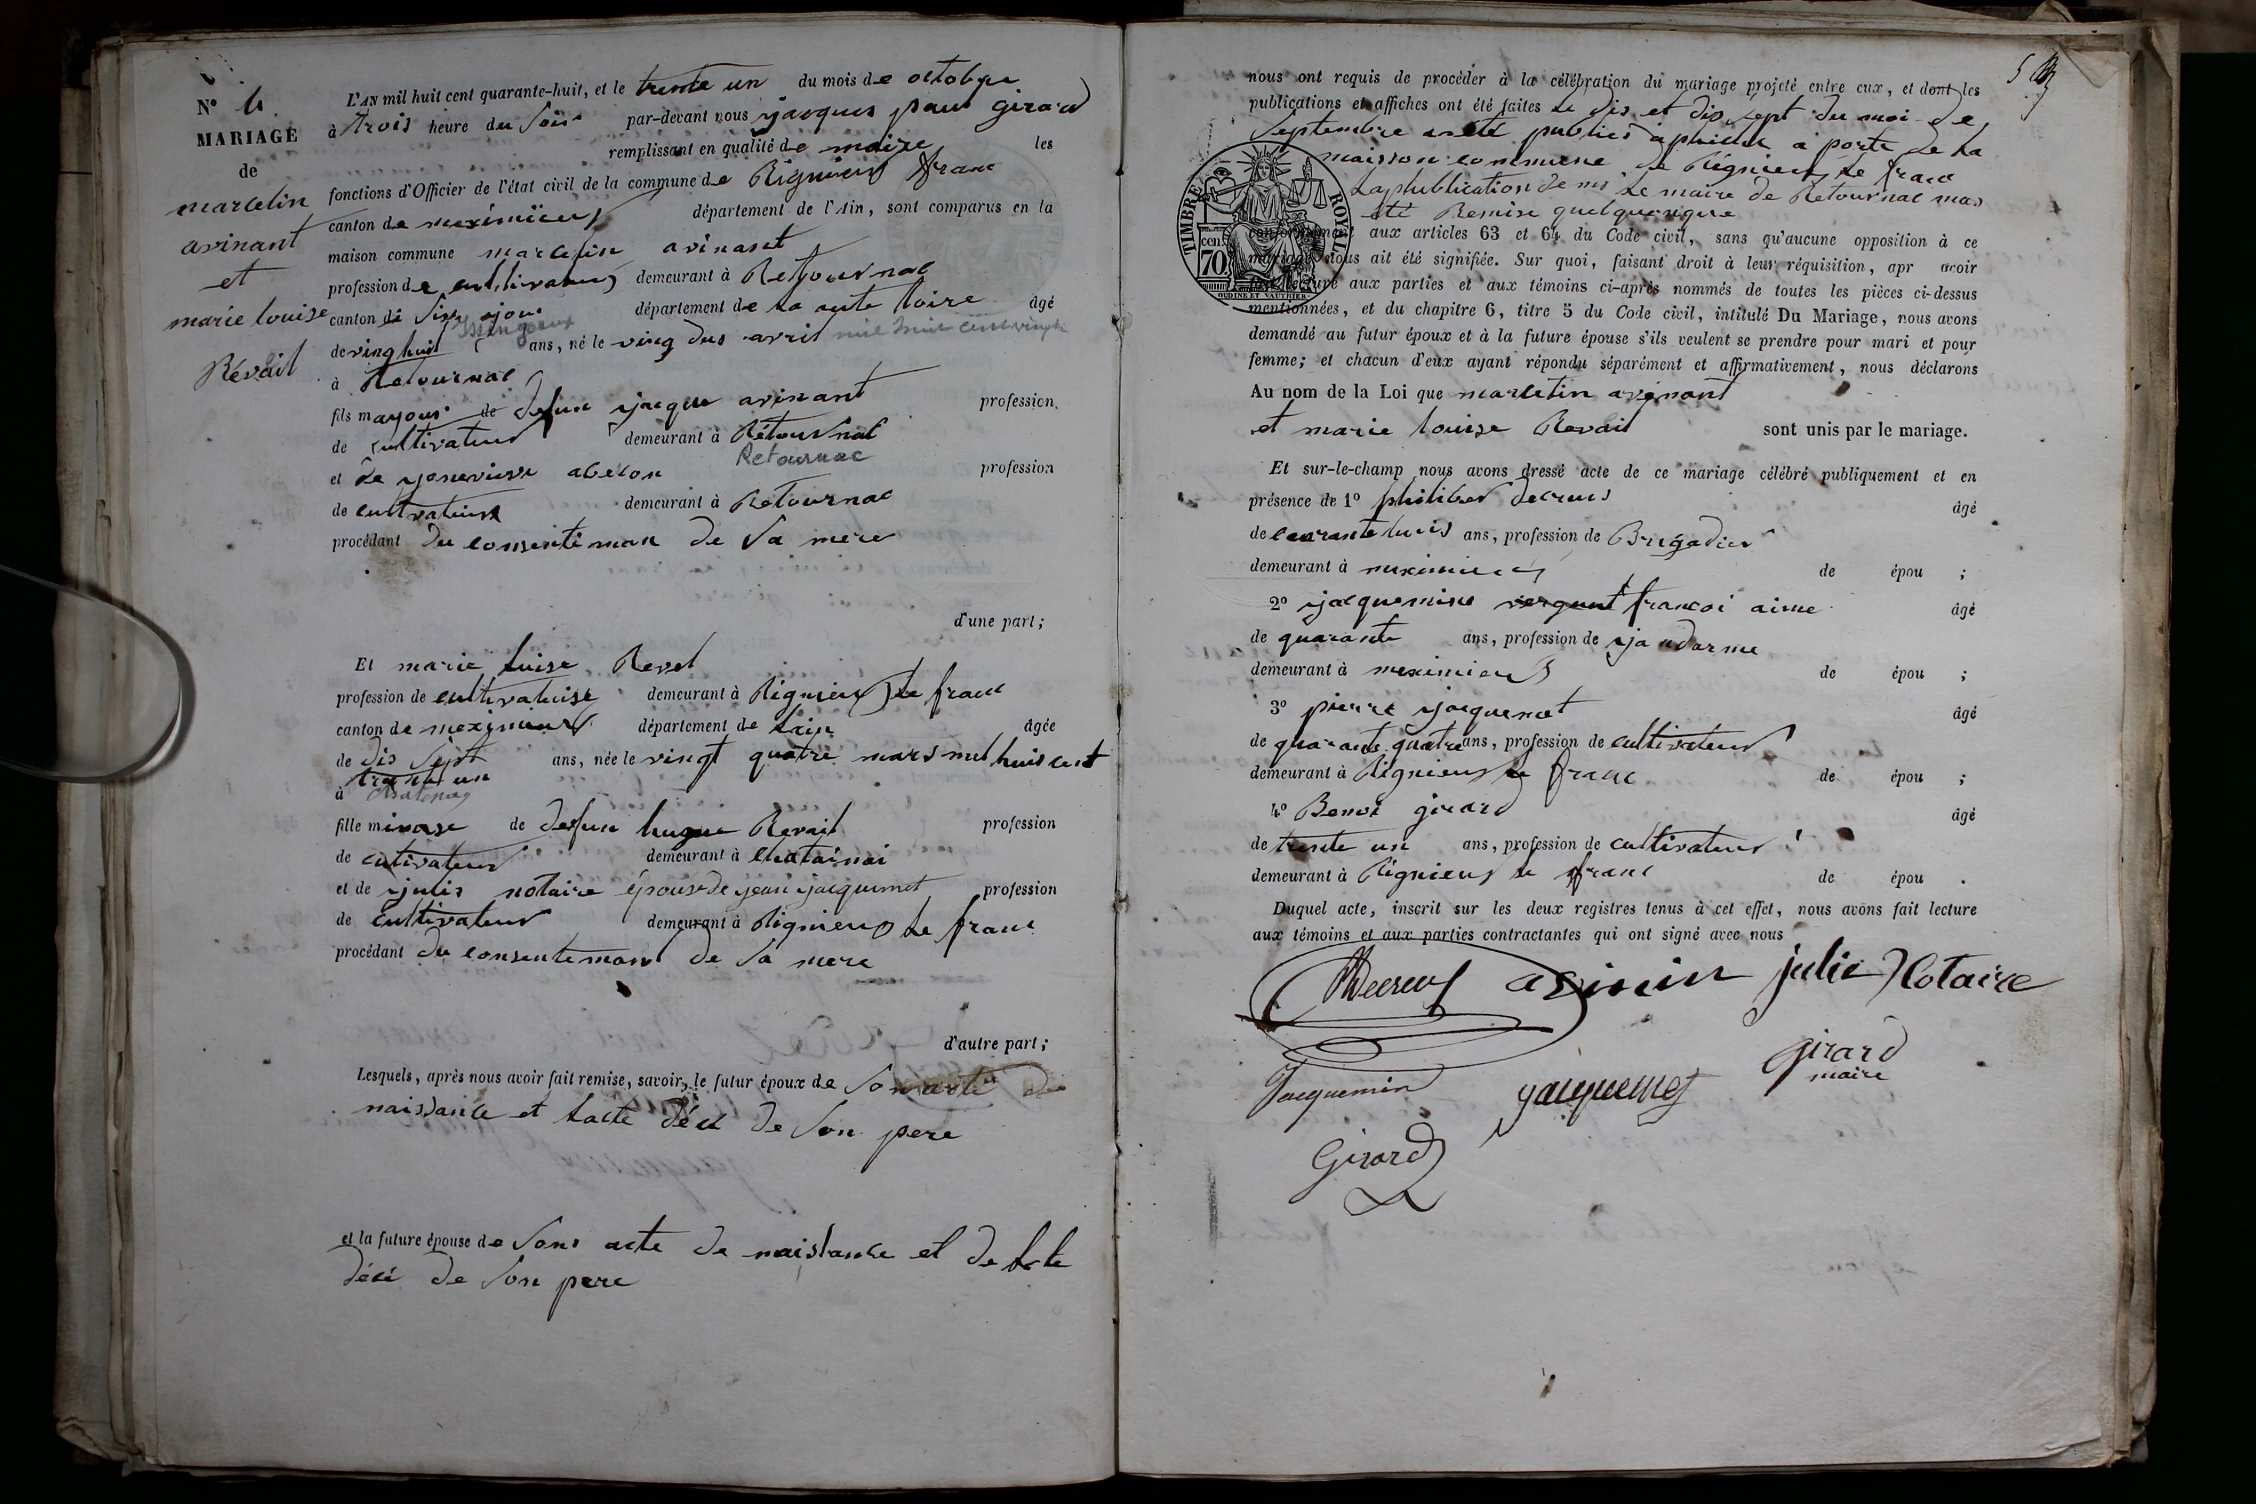 N° 4.
MARIAGE
de
marcelin
avinant
et
marie louise
Révail
L'AN mil huit cent quarante-huit, et le trente un du mois de octobre
à trois heure du Soir par-devant nous jacques paul girard
remplissant en qualité de maire les
fonctions d'Officier de l'état civil de la commune de Rignieux franc
canton de meximieux département de l'Ain, sont comparus en la
maison commune marcelin avinant
profession de cultivateur demeurant à Retournac
canton de département de la aute loire âgé
Issingeaux
de vinghuit ans, né le ving dus avril mil huit cent vingt
à Retournac
fils mayour de defun jacque avinant profession
de cultivateur demeurant à Rétournac
Retournac
et de jenevieve abelon profession
de cultivateur demeurant à Retournac
procédant du consentiman de Sa mere
d'une part;
Et marie luise Revel
profession de cultivatuise demeurant à Rignieux le franc
canton de meximieux département de lain âgée
de dis Sept ans, née le vingt quatre mars mil huis cent
trante un
à Chatenay
fille minore de defun hugue Revail profession
de cutivateur demeurant à Chatainai
et de julis notaire épouse de jean jacquemet profession
de cultivateur demeurant à Rignieux le franc
procédant du consenteman de Sa mere
d'autre part;
Lesquels, après nous avoir fait remise, savoir, le futur époux de Son acte de
naissance et lacte décé de Son pere
et la future épouse de Sons acte de naissance et de lacte
décé de Son pere
5
nous ont requis de procéder à la célébration du mariage projeté entre eux, et dont les
publications et affiches ont été faites le dis et dis sept du moi de
Septembre publies a porte de la
maisson commune de Rignieux le franc
La publication de mr le maire de Retournac mas
été Remise quelquonque
conformément aux articles 63 et 64 du Code civil, sans qu'aucune opposition à ce
mariage nous ait été signifiée. Sur quoi, faisant droit à leur réquisition, apr avoir
lecture aux parties et aux témoins ci-après nommés de toutes les pièces ci-dessus
mentionnées, et du chapitre 6, titre 5 du Code civil, intitulé Du Mariage, nous avons
demandé au futur époux et à la future épouse s'ils veulent se prendre pour mari et pour
femme; et chacun d'eux ayant répondu séparément et affirmativement, nous déclarons
TIMBRE ROYAL
70 cen
OUDINE ET VAUTHIER
Au nom de la Loi que marcletin avinant
et marie louise Revail sont unis par le mariage.
Et sur-le-champ nous avons dressé acte de ce mariage célébré publiquement et en
présence de 1° philiber decreus âgé
de ans, profession de Brigadier
demeurant à meximieux de épou ;
2° jacquemins francoi aime âgé
de quarante ans, profession de jandarme
demeurant à meximieux de épou ;
3° pierre jacquemet âgé
de quarante quatre ans, profession de cultivateur
demeurant à Rignieux le franc de épou ;
4° Benoi girard âgé
de trente un ans, profession de cultivateur
demeurant à Rignieux le franc de épou .
Duquel acte, inscrit sur les deux registres tenus à cet effet, nous avons fait lecture
aux témoins et aux parties contractantes qui ont signé avec nous
Decreus avinin julie Notaire
Jacquemin jacquemet girard
maire
Girard